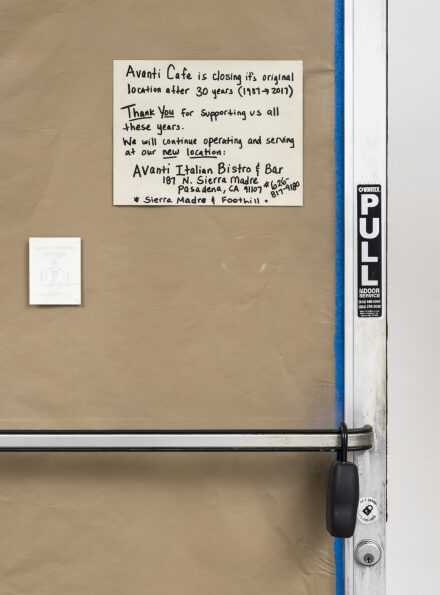 Avanti Cafe is closing it's original
location after 30 years (1987→2017)
Thank You for supporting us all
these years.
We will continue operating and serving
at our new location:
Avanti Italian Bistro & Bar
187 N. Sierra Madre
Pasadena, CA 91107
626-
817-9180
* Sierra Madre & Foothill *
I F F
VORTEX
PULL
DOOR
SERVICE